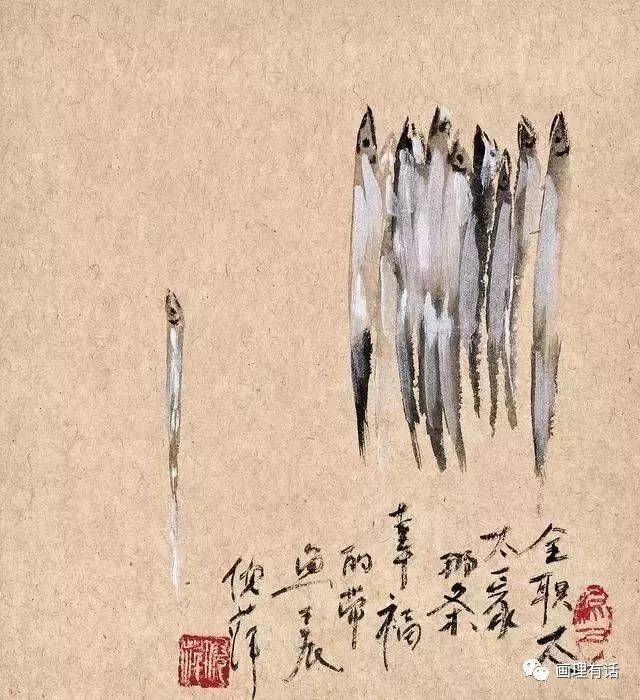 全职太
太
那条
幸福
的带
鱼 壬辰
倪萍
画理有话